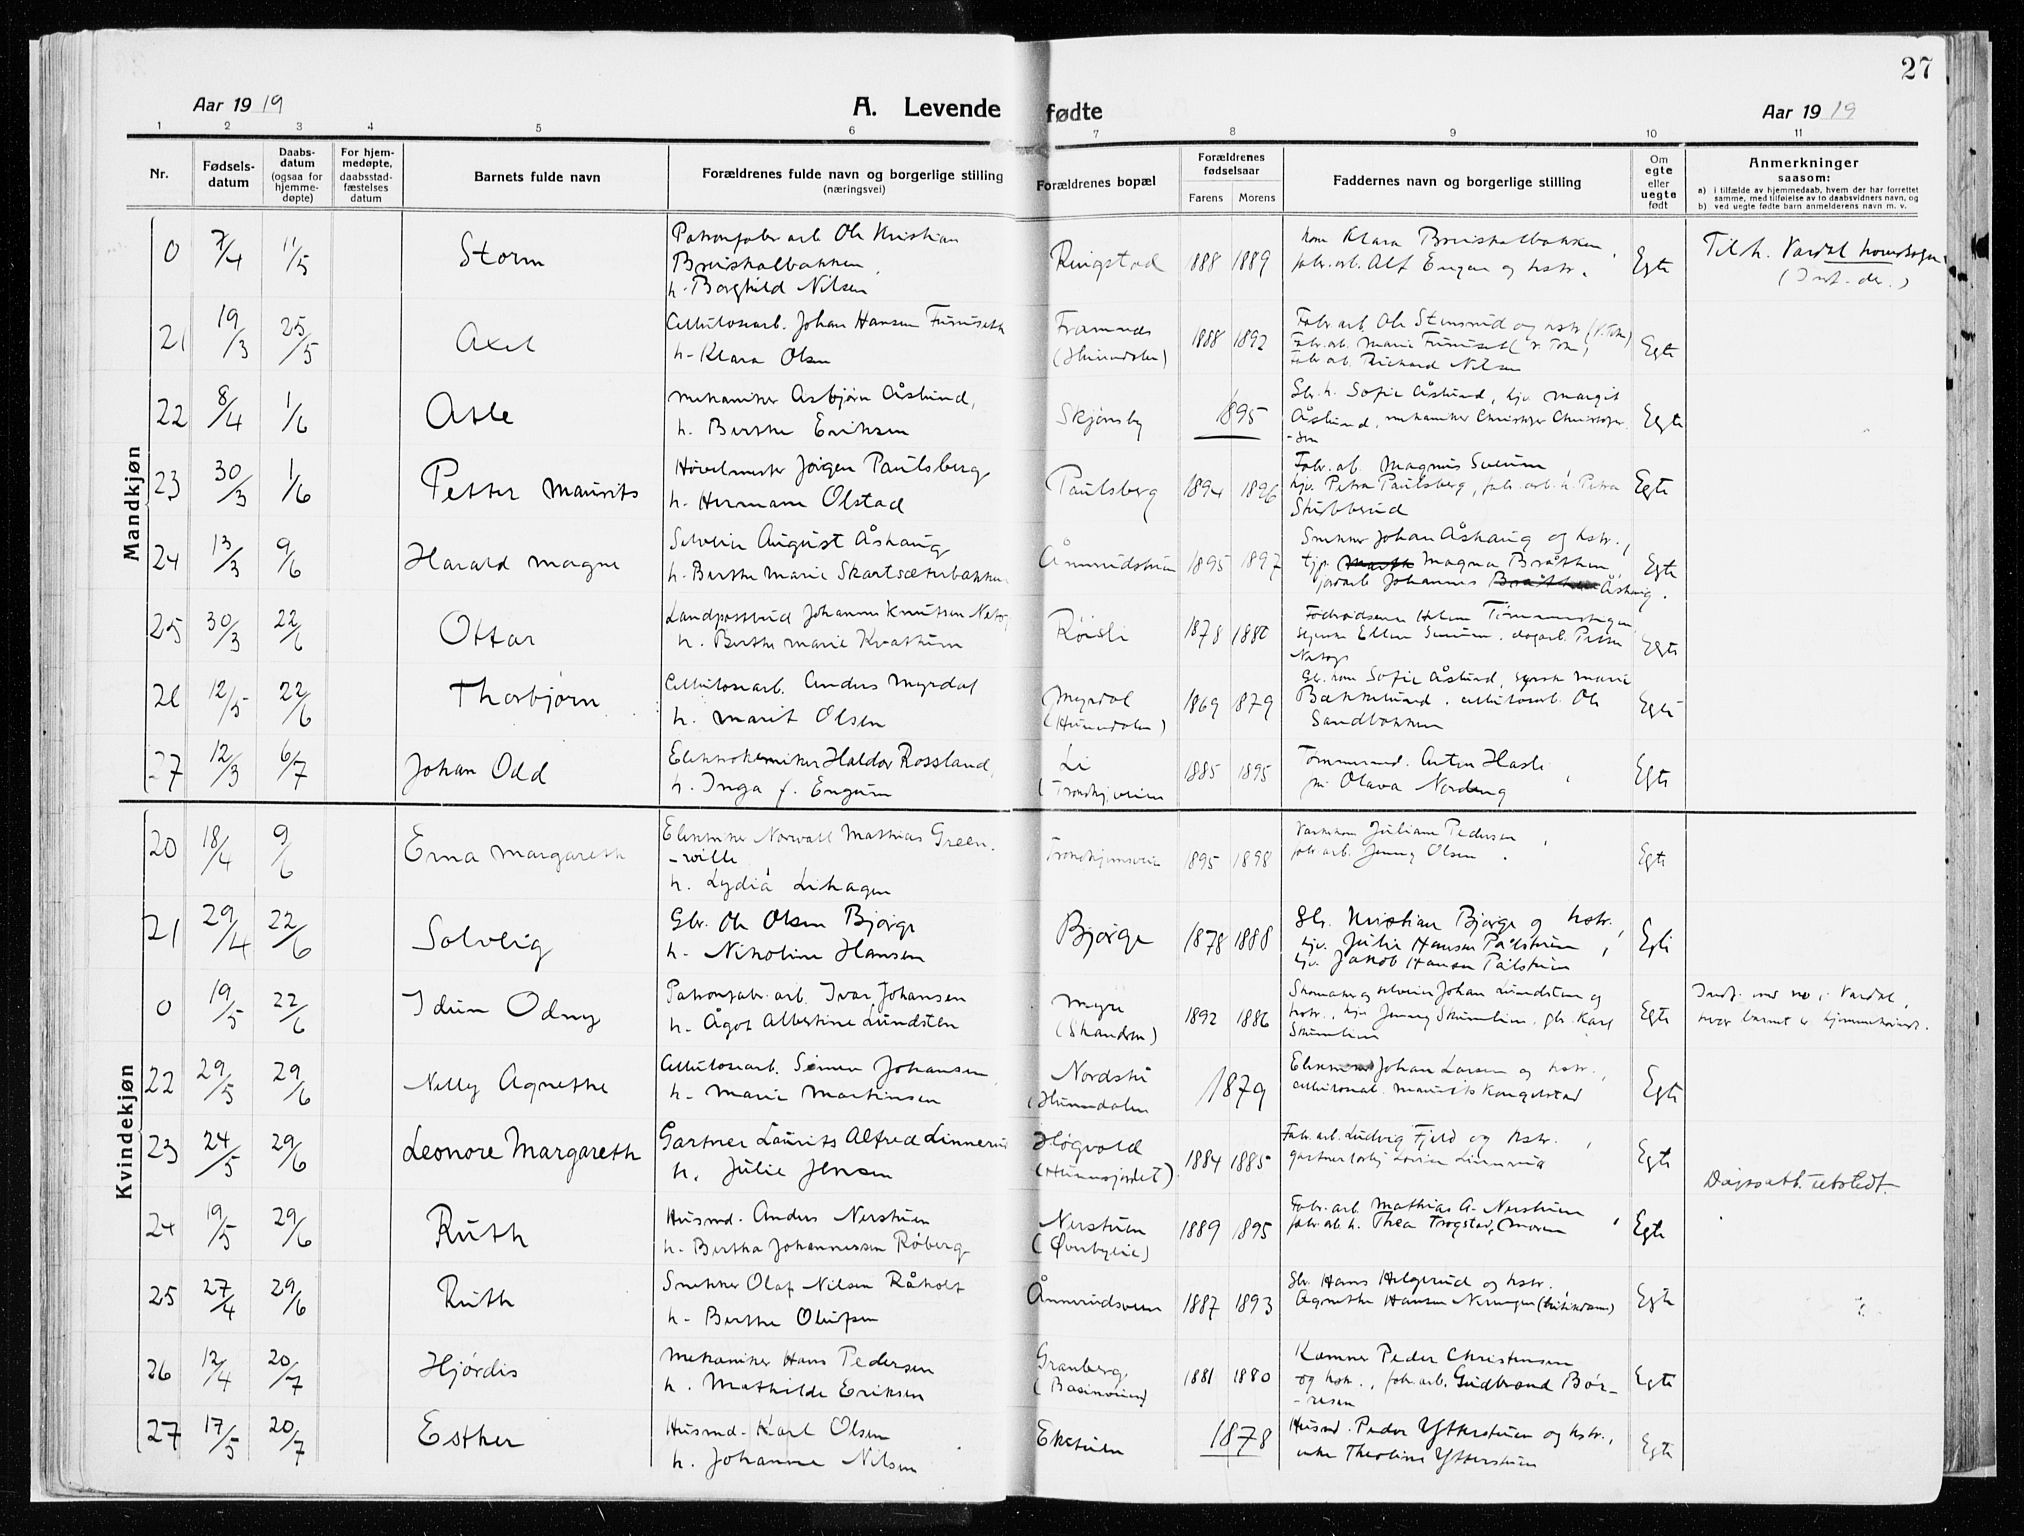 27
Aar 1919
A. Levende fødte
Aar 1919
1 2 3 4 5 6 7 8 9 10 11
Nr.
Fødsels-datum
Daabs-datum (ogsaa for hjemme-døpte)
For hjem-medøpte, daabsstad-fæstelses datum
Barnets fulde navn
Forældrenes fulde navn og borgerlige stilling (næringsvei)
Forældrenes bopæl
Forældrenes fødselsaar
Farens Morens
Faddernes navn og borgerlige stilling
Om egte eller uegte født
Anmerkninger saasom:
a) i tilfælde av hjemmedaab, hvem der har forrettet samme, med tilføielse av to daabsvidners navn, og
b) ved uegte fødte barn anmelderens navn m. v.
Mandkjøn
0 7/4 11/5 Storm Patronfabr.arb. Ole Kristian
h. Borghild Nilsen
Ringstad 1888 1889
fabr.arb. Alf Engen og hstr. Egte
Tilh. Vardal hovedsogn
21 19/3 25/5 Axel Cellulosearb. Johan Hansen Furuseth
h. Klara Olsen
Framnes (Hunndalen) 1888 1892
Fabr.arb. Ole Stensrud og hstr.
Fabr.arb. Richard Nilsen Egte
22 8/4 1/6 Atle Mekaniker Asbjørn Åslund,
h. Berthe Eriksen
Skjønsby 1895
Gbr. h. Sofie Åslund, hjv. Margit
Åslund, mekaniker Christofer Christofer-
-sen Egte
23 30/3 1/6 Petter Maurits Høvelmester Jørgen Paulsberg
h. Hermane Olstad
Paulsberg 1894 1896
Fabr.arb. Magnus Sveum,
hjv. Petra Paulsberg, fabr.arb. h. Petra
Skibberud Egte
24 13/3 9/6 Harald Magne Selveier August Åshaug
h. Berthe Marie Skartsæterbakken
Ånnerudstuen 1895 1897
Snekker Johan Åshaug og hstr.,
tjp. Magna Bråthen,
Johannes Åshaug. Egte
25 30/3 22/6 Ottar Landpostbud Johannes Knutsen
h. Berthe Marie Kvathum
Røisli 1878 1880
Egte
26 12/5 22/6 Thorbjørn Cellulosearb. Anders Myrdal
h. Marit Olsen
Myrdal (Hunndalen) 1869 1879
Gbr. kone Sofie Åslund, syerske Marie
Bækkelund, cellulosearb. Ole
Sandbakken Egte
27 12/3 6/7 Johan Odd Elektrokemiker Haldor Rossland,
h. Inga f. Engum
Li 1885 1895
Tømmermd. Anton Hasle,
Olava Nordeng Egte
Kvindekjøn
20 18/4 9/6 Erna Margareth Elektriker Norvall Mathias Green-
-ville,
h. Lydia Lihagen
Trondhjemsveien 1895 1898
Juliane Pedersen,
fabr.arb. Jenny Olsen. Egte
21 29/4 22/6 Solveig Gbr. Ole Olsen Bjørge
h. Nikoline Hansen
Bjørge 1878 1888
Gbr. Kristian Bjørge og hstr.,
hjv. Julie Hansen Pålstuen,
hjv. Jakob Hansen Pålstuen Egte
0 19/5 22/6 Idun Odny Patronfabr.arb. Ivar Johansen
h. Ågot Albertine Lundsten
Myre 1892 1886
Skomaker og selveier Johan Lundsten og
hstr., hjv. Jenny Skumlien, gbr. Karl
Skumlien Egte
Indf. med no i Vardal,
hvor barnet er hjemmehørende.
22 29/5 29/6 Nelly Agnethe Cellulosearb. Simen Johansen,
h. Marie Martinsen
(Hunndalen 1879
Johan Larsen og hstr.,
cellulosearb. Maurits Kongelstad Egte
23 24/5 29/6 Leonore Margareth Gartner Laurits Alfred Linnerud
h. Julie Jensen
Høgvold (Hunnsjordet) 1884 1885
Fabr.arb. Ludvig Fjeld og hstr.,
Egte
Dåpsatt. utstedt.
24 19/5 29/6 Ruth Husmd. Anders Nerstuen
h. Bertha Johannessen Røberg
Nerstuen 1889 1895
Fabr.arb. Mathias A. Nerstuen,
fabr.arb. h. Thea Trogstad, Egte
25 27/4 29/6 Ruth Snekker Olaf Nilsen Råholt
h. Berthe Olufsen
Ånnerudsveien 1887 1893
Gbr. Hans Helgerud og hstr.
Agnethe Hansen Egte
26 12/4 20/7 Hjørdis Mekaniker Hans Pedersen
h. Mathilde Eriksen
Granberg 1881 1880
Kæmner Peder Christensen
og hstr., fabr.arb. Gudbrand Bør-
-resen Egte
27 17/5 20/7 Esther Husmd. Karl Olsen
h. Johanne Nilsen
Ekstuen 1878
Husmd. Peder Ytterstuen og hstr.,
enke Theoline Ytterstuen Egte